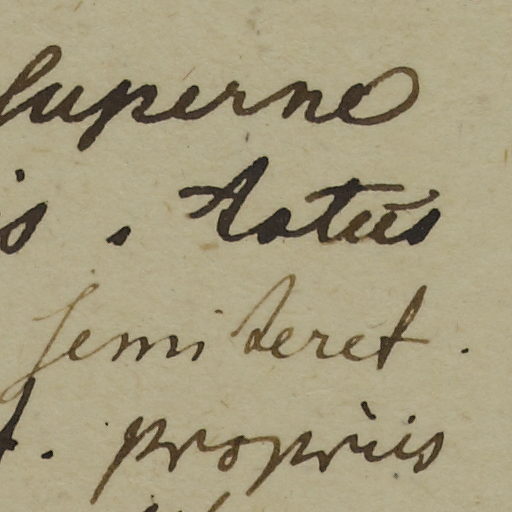 superne
is. totus
semiteret.
t. propriis